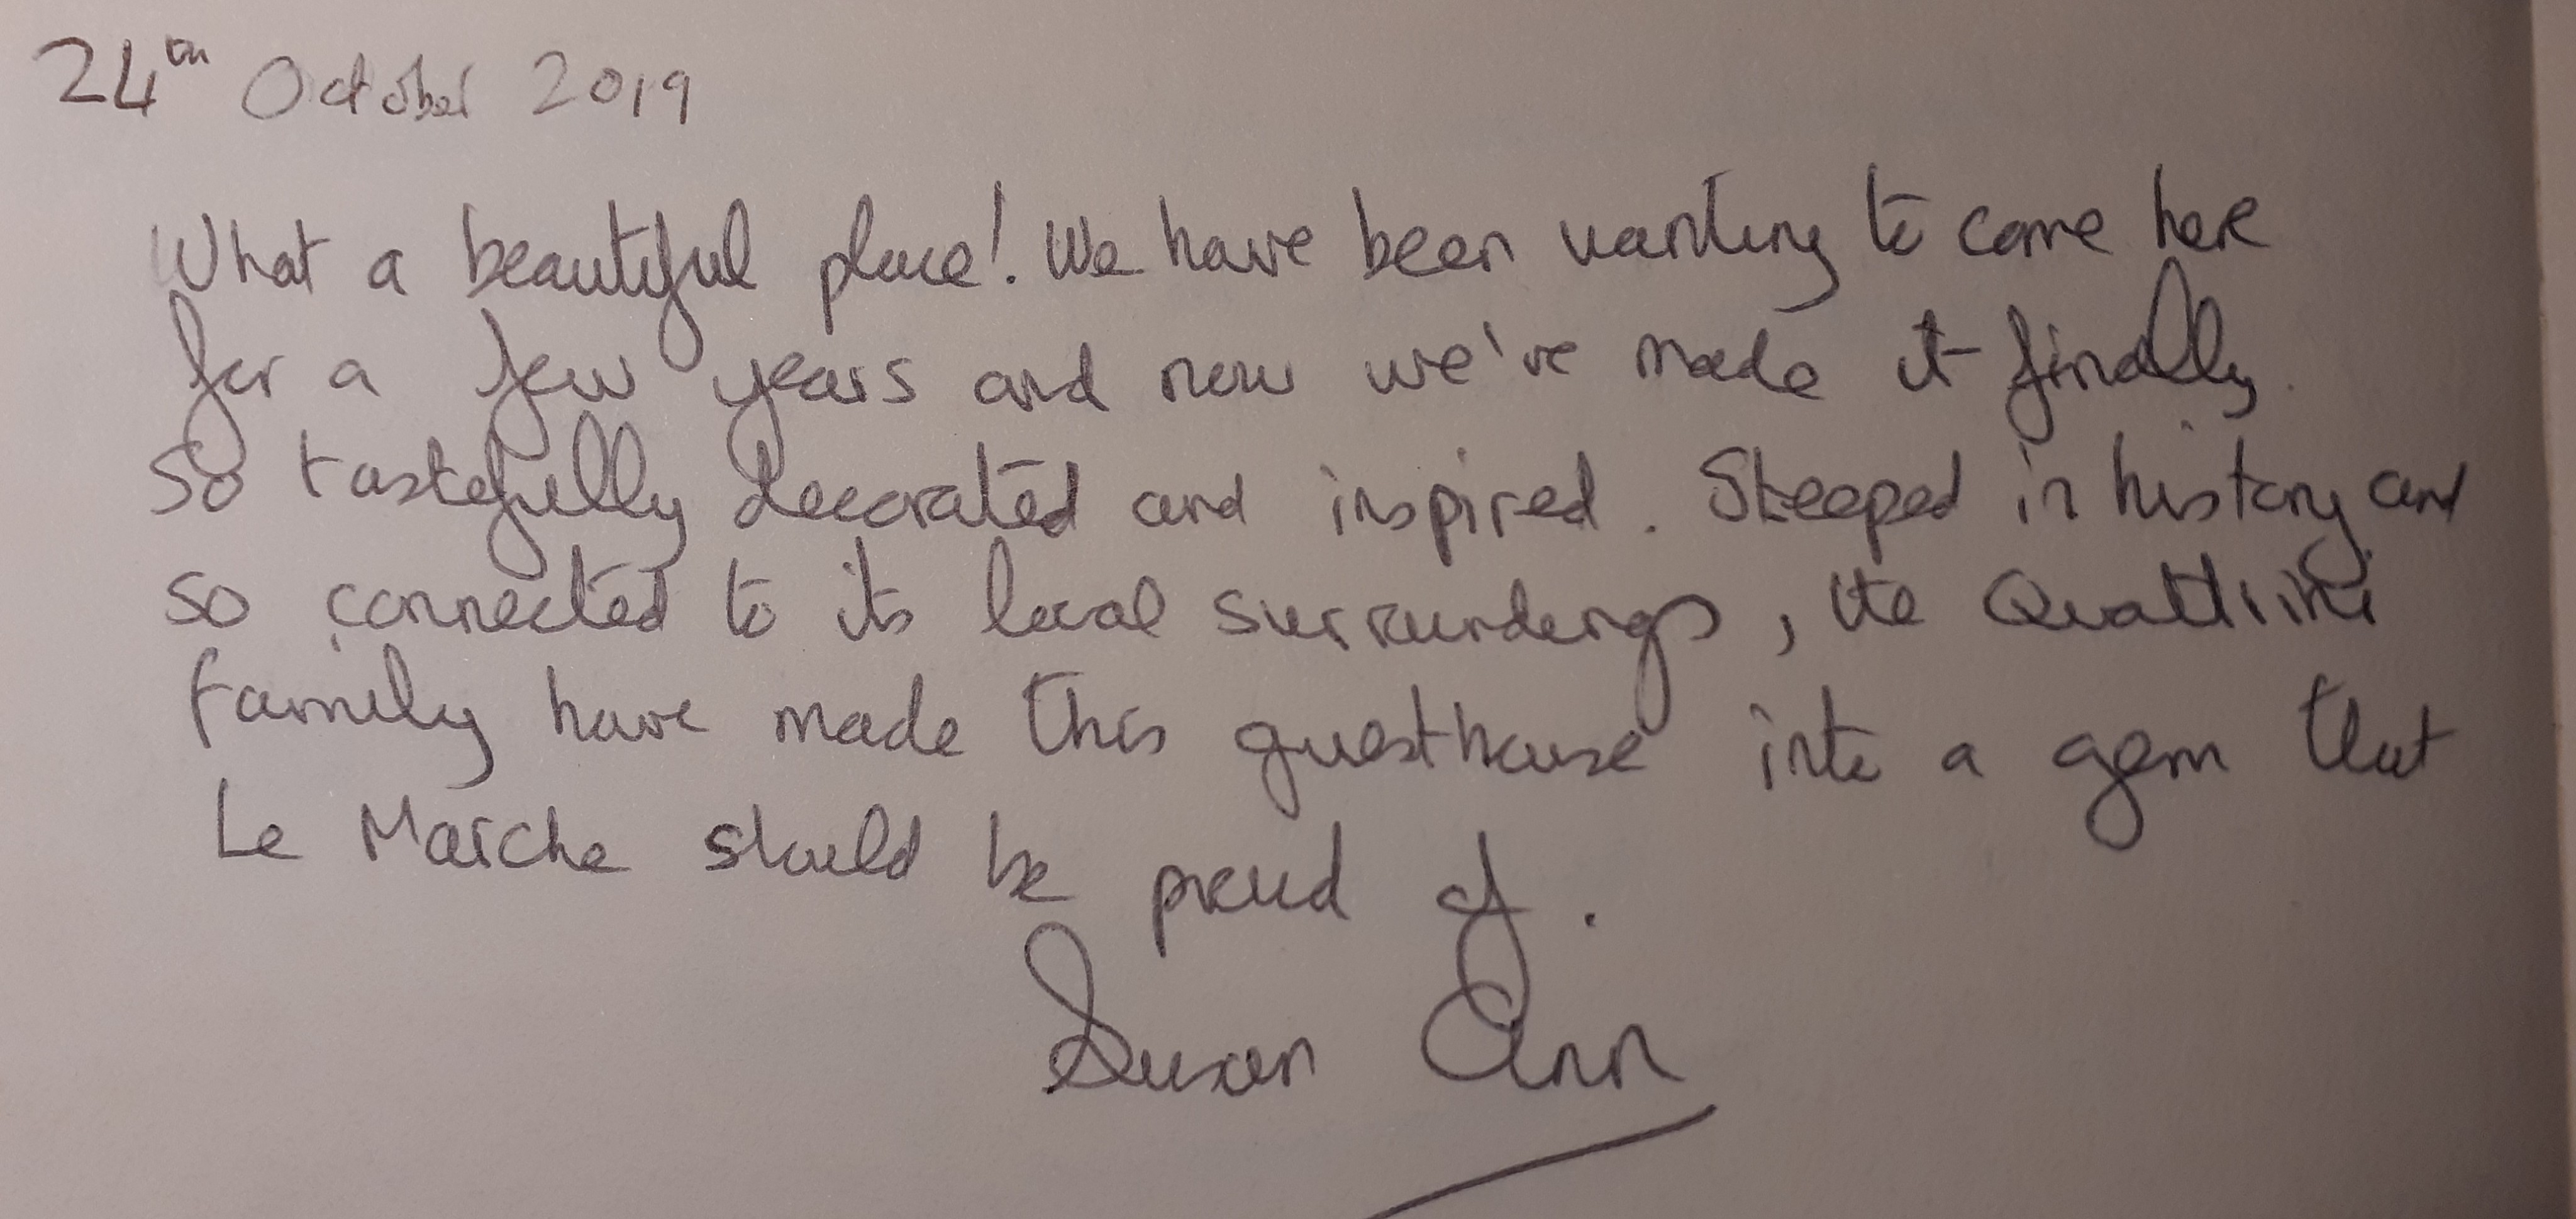 24th October 2019
What a beautiful place! We have been wanting to come here
for a few years and now we've made it finally.
So tastefully decorated and inspired. Steeped in history and
so connected to its local surroundings, the
family have made this guesthouse into a gem that
Le Marche should be proud of.
Susan Ann